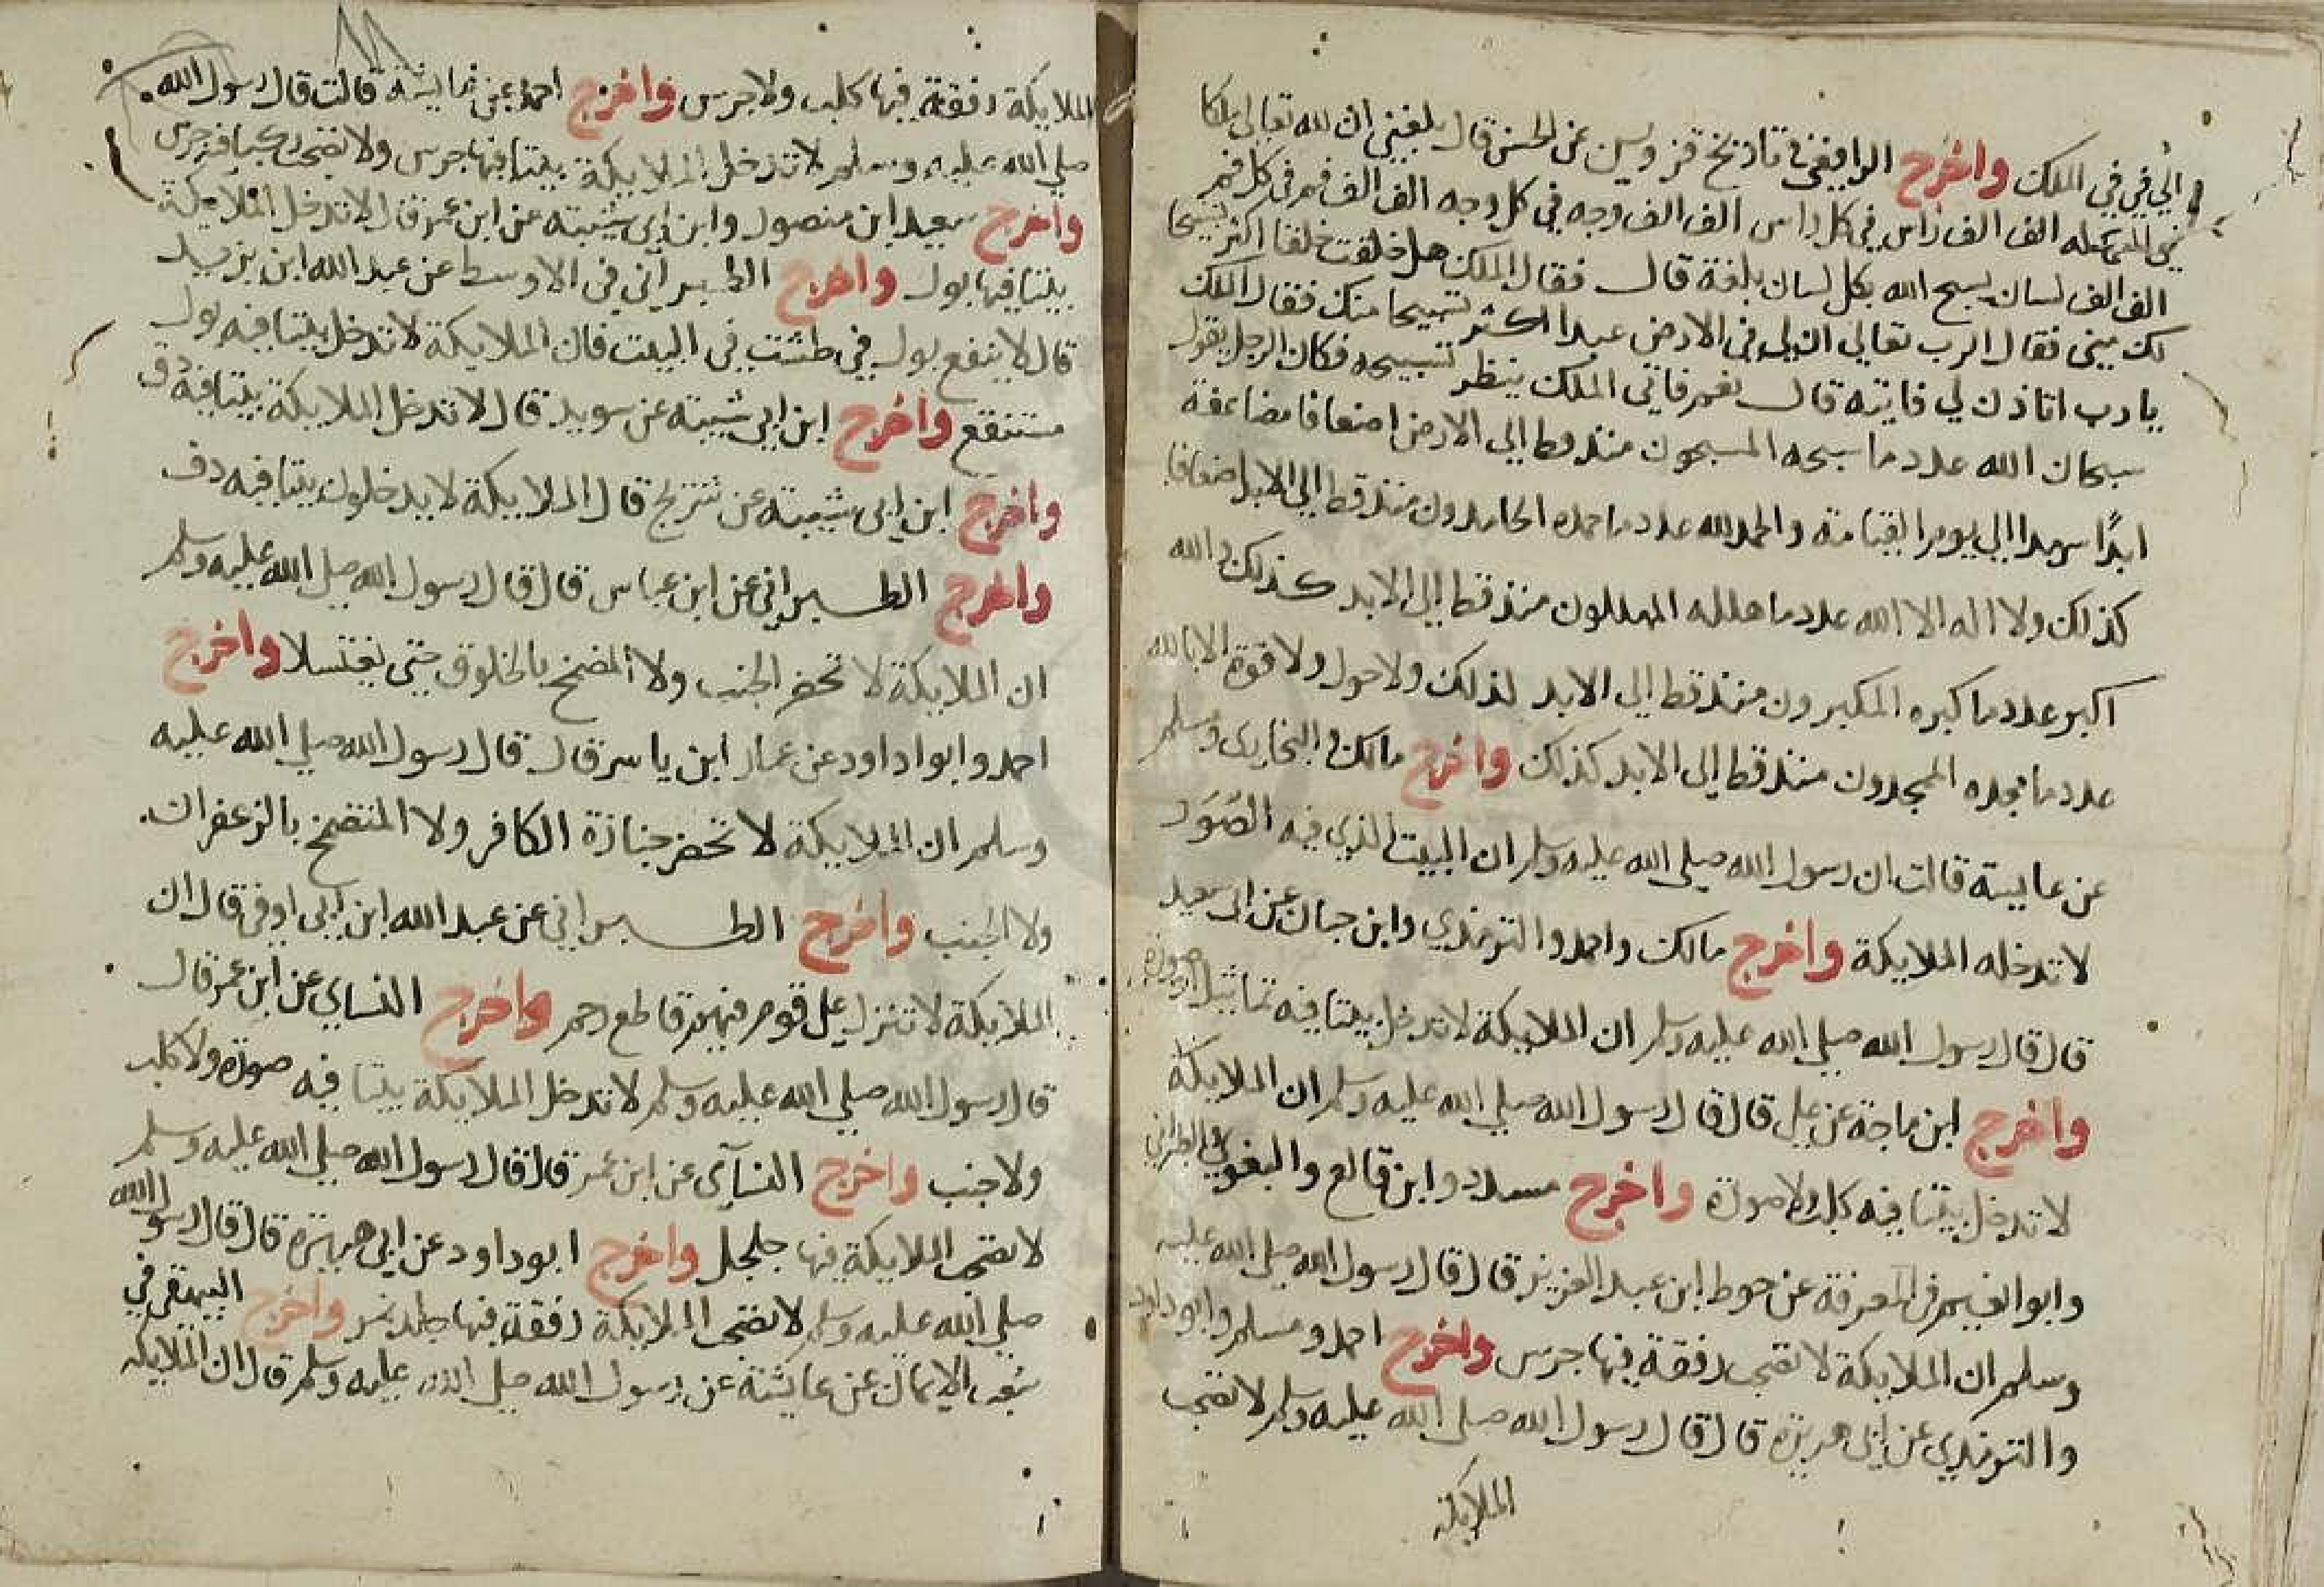 الي في في الملك واخرج الرافعي في تاريخ قزوين عن الحسن قال بلغني ان لله تعالي ملكا
في السما له الف الف راس في كل راس الف الف وجه في كل وجه الف الف فم في كل فم
الف الف لسان يسبح الله بكل لسان بلغة قال فقال الملك هل خلقت خلقا اكثر تسبيحا
لك مني فقال الرب تعالي ان لي في الارض عبدا اكثر تسبيحا منك فقال الملك
يا رب اتاذن لي فاتيه قال نعم فاتي الملك ينظر تسبيحه فكان الرجل يقول
سبحان الله عدد ما سبحه المسبحون منذ قط الي الارض اضعافا مضاعفة
ابدًا سرمدا الي يوم القيامة والحمد لله عدد ما حمده الحامدون منذ قط الي الابد اضعافا
كذلك ولا اله الا الله عدد ما هلله المهللون منذ قط الي الابد كذلك والله
اكبر عدد ما كبره المكبرون منذ قط الي الابد لذلك ولا حول ولا قوة الا بالله
عدد ما مجده الممجدون منذ قط الي الابد كذلك واخرج مالك والبخاري ومسلم
عن عايسة قالت ان رسول الله صلي الله عليه وسلم ان البيت الذي فيه الصُوَر
لا تدخله الملايكة واخرج مالك واحمد والترمذي وابن حبان عن ابي سعيد
قال قال رسول الله صلي الله عليه وسلم ان الملايكة لا تدخل بيتا فيه تماثيل او صورة
واخرج ابن ماجة عن علي قال قال رسول الله صلي الله عليه وسلم ان الملايكة
لا تدخل بيتا فيه كلب ولا صورة واخرج مسدد وابن قانع والبغوي والطبراني
وابو انعيم في المعرفة عن حوط ابن عبد العزيز قال قال رسول الله صلي الله عليه
وسلم ان الملايكة لا تصحب رفقة فيها جرس واخرج احمد ومسلم وابو داود
والترمذي عن ابي هريرة قال قال رسول الله صلي الله عليه وسلم لا تصحب
الملايكة
الملايكة رفقة فيها كلب ولا جرس واخرج احمد عن عايشة قالت قال رسول الله
صلي الله عليه وسلم لا تدخل الملايكة بيتا فيها جرس ولا تصحب ركبا فيه جرس
واخرج سعيد ابن منصور وابن ابي شيبته عن ابن عمر قال لا تدخل الملايكة
بيتا فيها بول واخرج الطبراني في الاوسط عن عبد الله ابن يزيد
قال لا ينقع بول في طشت في البيت فان الملايكة لا تدخل بيتا فيه بول
مستنقع واخرج ابن ابي شيبته عن سويد قال لا تدخل الملايكة بيتا فيه دف
واخرج ابن ابي شيبته عن شريح قال الملايكة لا يدخلون بيتا فيه دف
واخرج الطبراني عن ابن عباس قال قال رسول الله صلي الله عليه وسلم
ان الملايكة لا تحضر الجنب ولا المضمخ بالخلوق حتي يغتسلا واخرج
احمد وابوا داود عن عمار ابن ياسر قال قال رسول الله صلي الله عليه
وسلم ان الملايكة لا تحضر جنازة الكافر ولا المتضمخ بالزعفران
ولا الجنب واخرج الطبراني عن عبد الله ابن ابي اوفي قال ان
الملايكة لا تنزل علي قوم فيهم قاطع رحم واخرج النساي عن ابن عمر قال
قال رسول الله صلي الله عليه وسلم لا تدخل الملايكة بيتا فيه صورة ولا كلب
ولا جنب واخرج النسآي عن ابن عمر قال قال رسول الله صلي الله عليه وسلم
لا تصحب الملايكة فيها جلجل واخرج ابو داود عن ابي هريرة قال قال رسول الله
صلي الله عليه وسلم لا تصحب الملايكة رفقة فيها جلد نمر واخرج البيهقي في
شعب الايمان عن عايشة عن رسول الله صلي الله عليه وسلم قال ان الملايكه